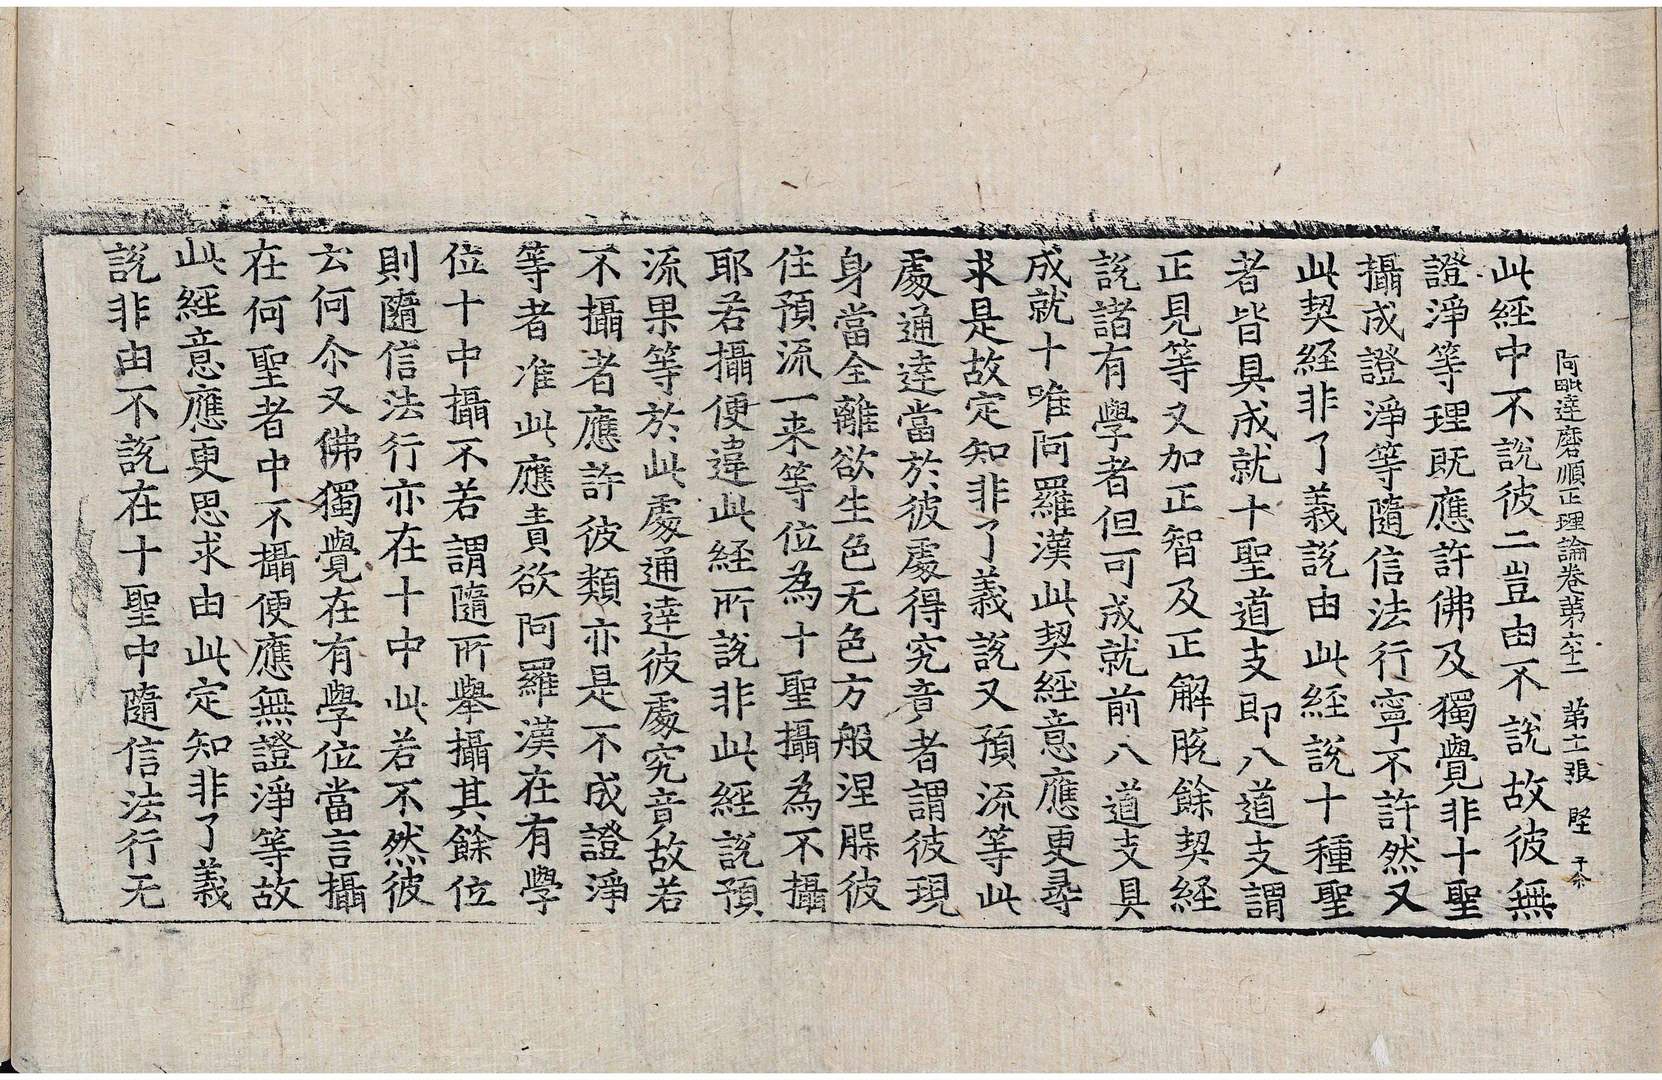 阿毗達磨順正理論卷第六十二　第十二張　堅
此經中不說彼二豈由不說故彼無
證淨等理既應許佛及獨覺非十聖
攝成證淨等隨信法行寧不許然又
此契經非了義說由此經說十種聖
者皆具成就十聖道支即八道支謂
正見等又加正智及正解脫餘契經
說諸有學者但可成就前八道支具
成就十唯阿羅漢此契經意應更尋
求是故定知非了義說又預流等此
處通達當於彼處得究竟者謂彼現
身當全離欲生色无色方般涅槃彼
住預流一来等位為十聖攝為不攝
耶若攝便違此經所說非此經說預
流果等於此處通達彼處究竟故若
不攝者應許彼類亦是不成證淨
等者准此應責欲阿羅漢在有學
位十中攝不若謂隨所舉攝其餘位
則隨信法行亦在十中此若不然彼
云何尒又佛獨覺在有學位當言攝
在何聖者中不攝便應無證淨等故
此經意應更思求由此定知非了義
說非由不說在十聖中隨信法行无